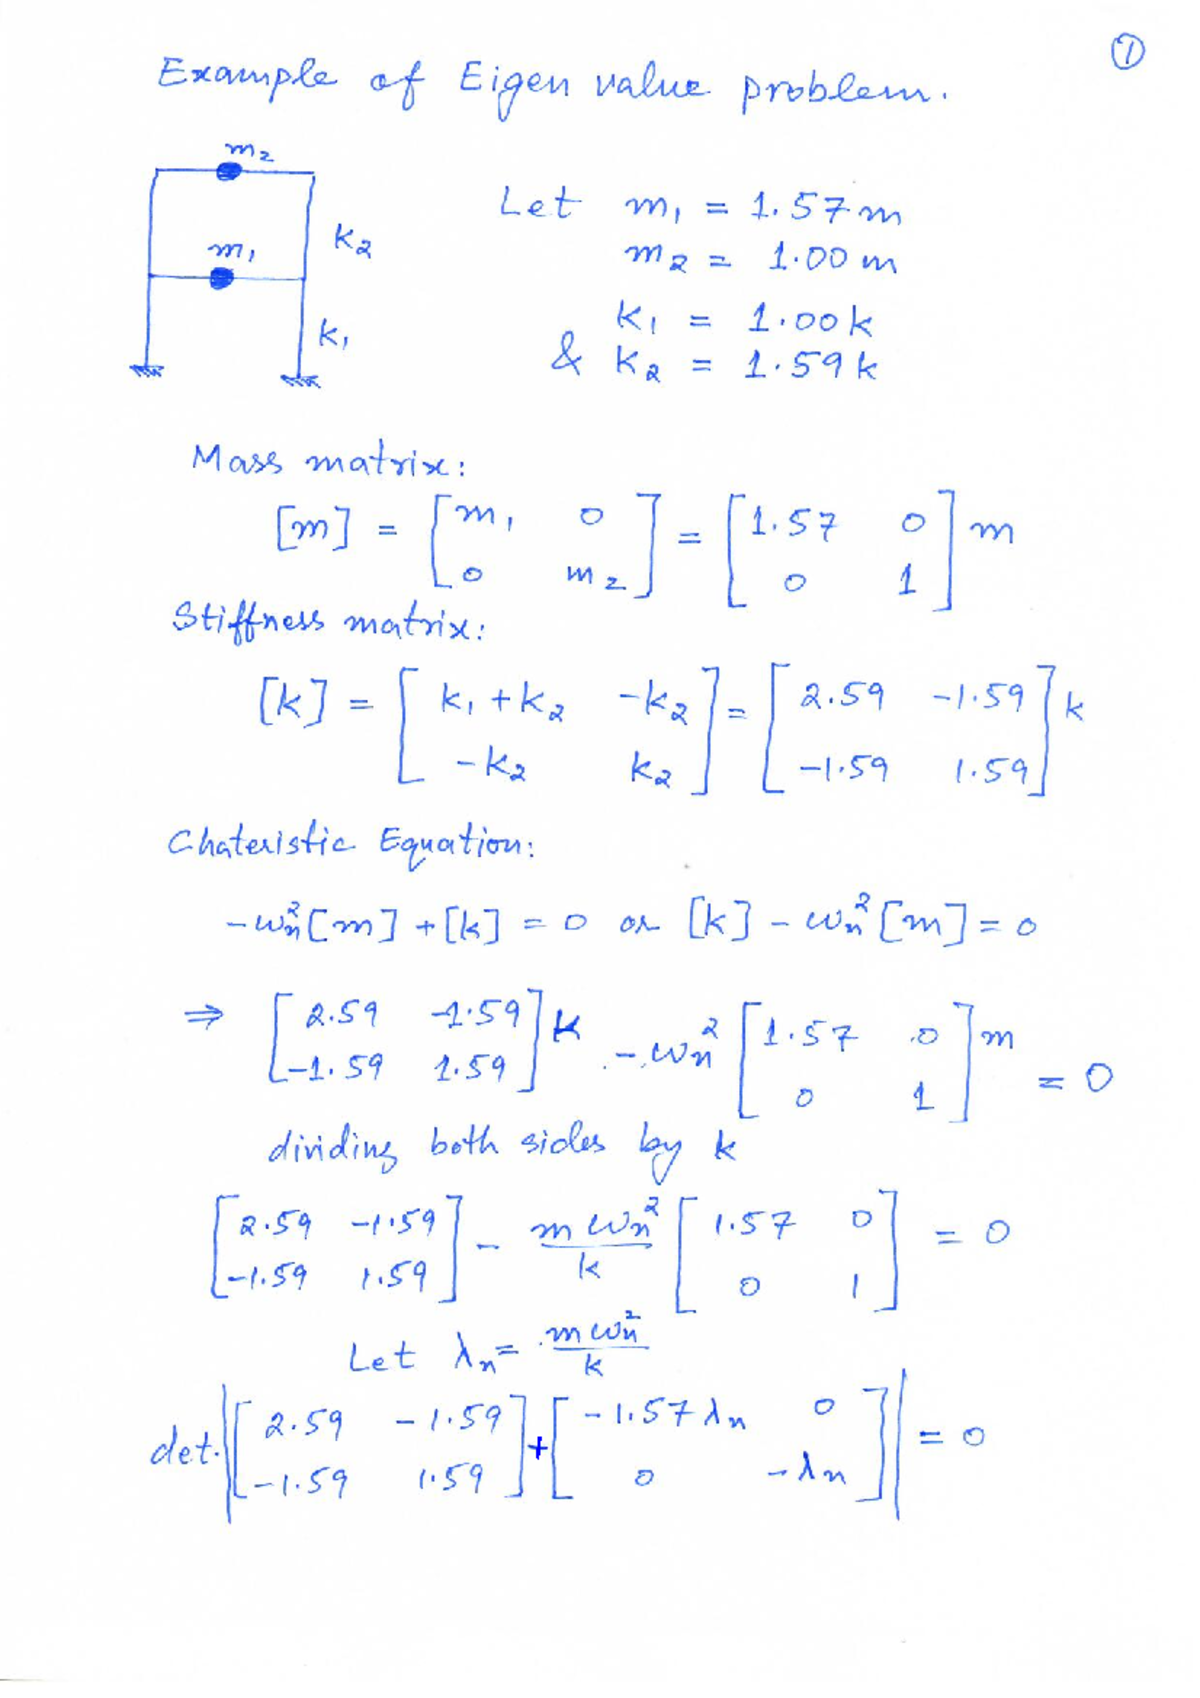 ①
Example of Eigen value problem.
m₂
k₂
m₁
k₁
Let m₁ = 1.57m
m₂ = 1.00 m
k₁ = 1.00k
& k₂ = 1.59k
Mass matrix:
[m] = [m₁ 0; 0 m₂] = [1.57 0; 0 1] m
Stiffness matrix:
[k] = [k₁+k₂ -k₂; -k₂ k₂] = [2.59 -1.59; -1.59 1.59] k
Chateristic Equation:
-ωn²[m] + [k] = 0 or [k] - ωn²[m] = 0
⇒ [2.59 -1.59; -1.59 1.59] k - ωn² [1.57 0; 0 1] m = 0
dividing both sides by k
[2.59 -1.59; -1.59 1.59] - mωn²/k [1.57 0; 0 1] = 0
Let λn = mωn²/k
det. |[2.59 -1.59; -1.59 1.59] + [-1.57λn 0; 0 -λn]| = 0